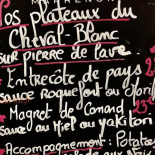 Nos plateaux du
Cheval-Blanc
sur pierre de lave.
Entrecôte de pays
sauce Roquefort ou
Magret de Canard
sauce au Miel ou yakitori
Accompagnement: Potatoe